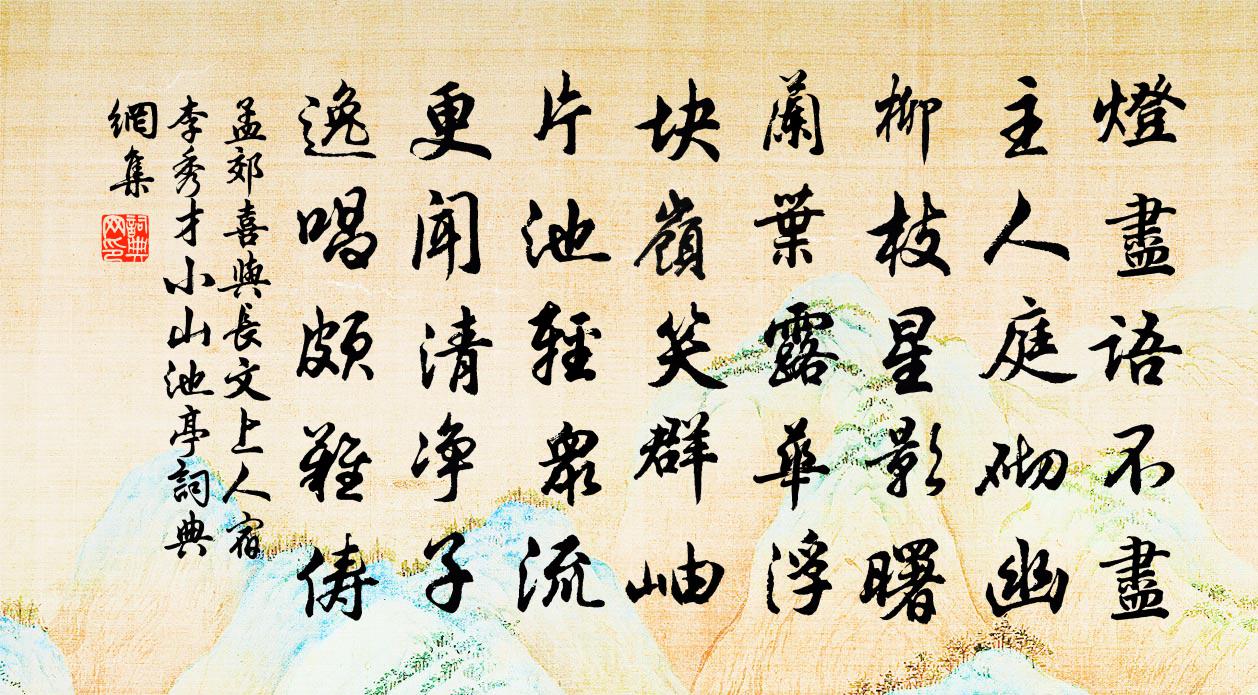 燈盡語不盡
主人庭砌幽
柳枝星影曙
蘭葉露華浮
塊嶺笑群岫
片池輕眾流
更聞清净子
逸唱頗難儔
孟郊喜與長文上人宿
李秀才小山池亭詞典
網集
詞典網印